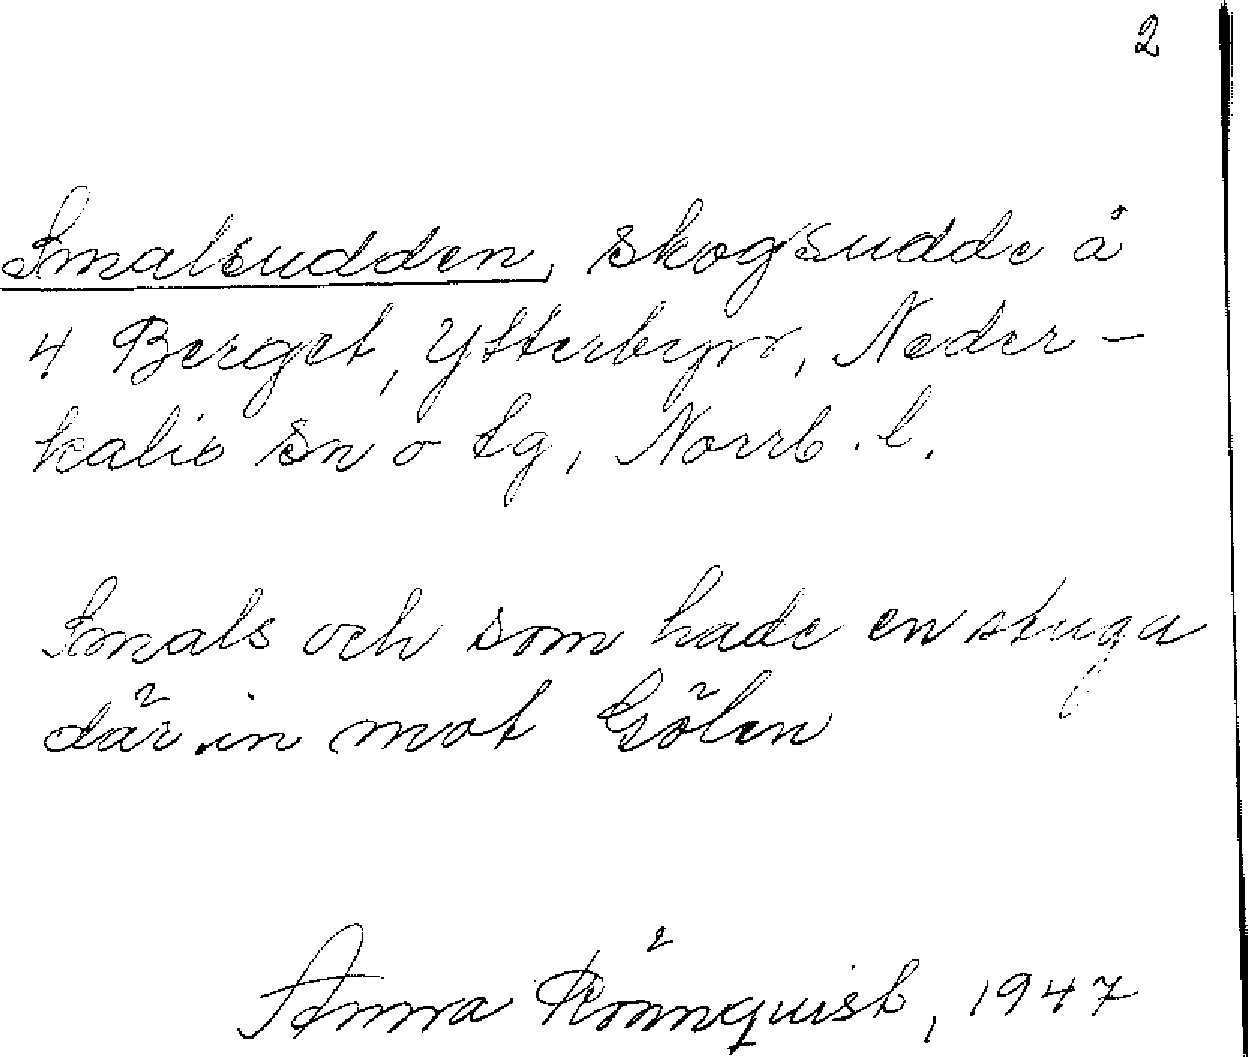 2
Smalsudden, skogsudde å
4 Berget, Ytterbyn, Neder-
kalix sn o tg, Norrb. l.
Smals och som hade en stuga
där in mot Gölen
Anna Rönnquist, 1947